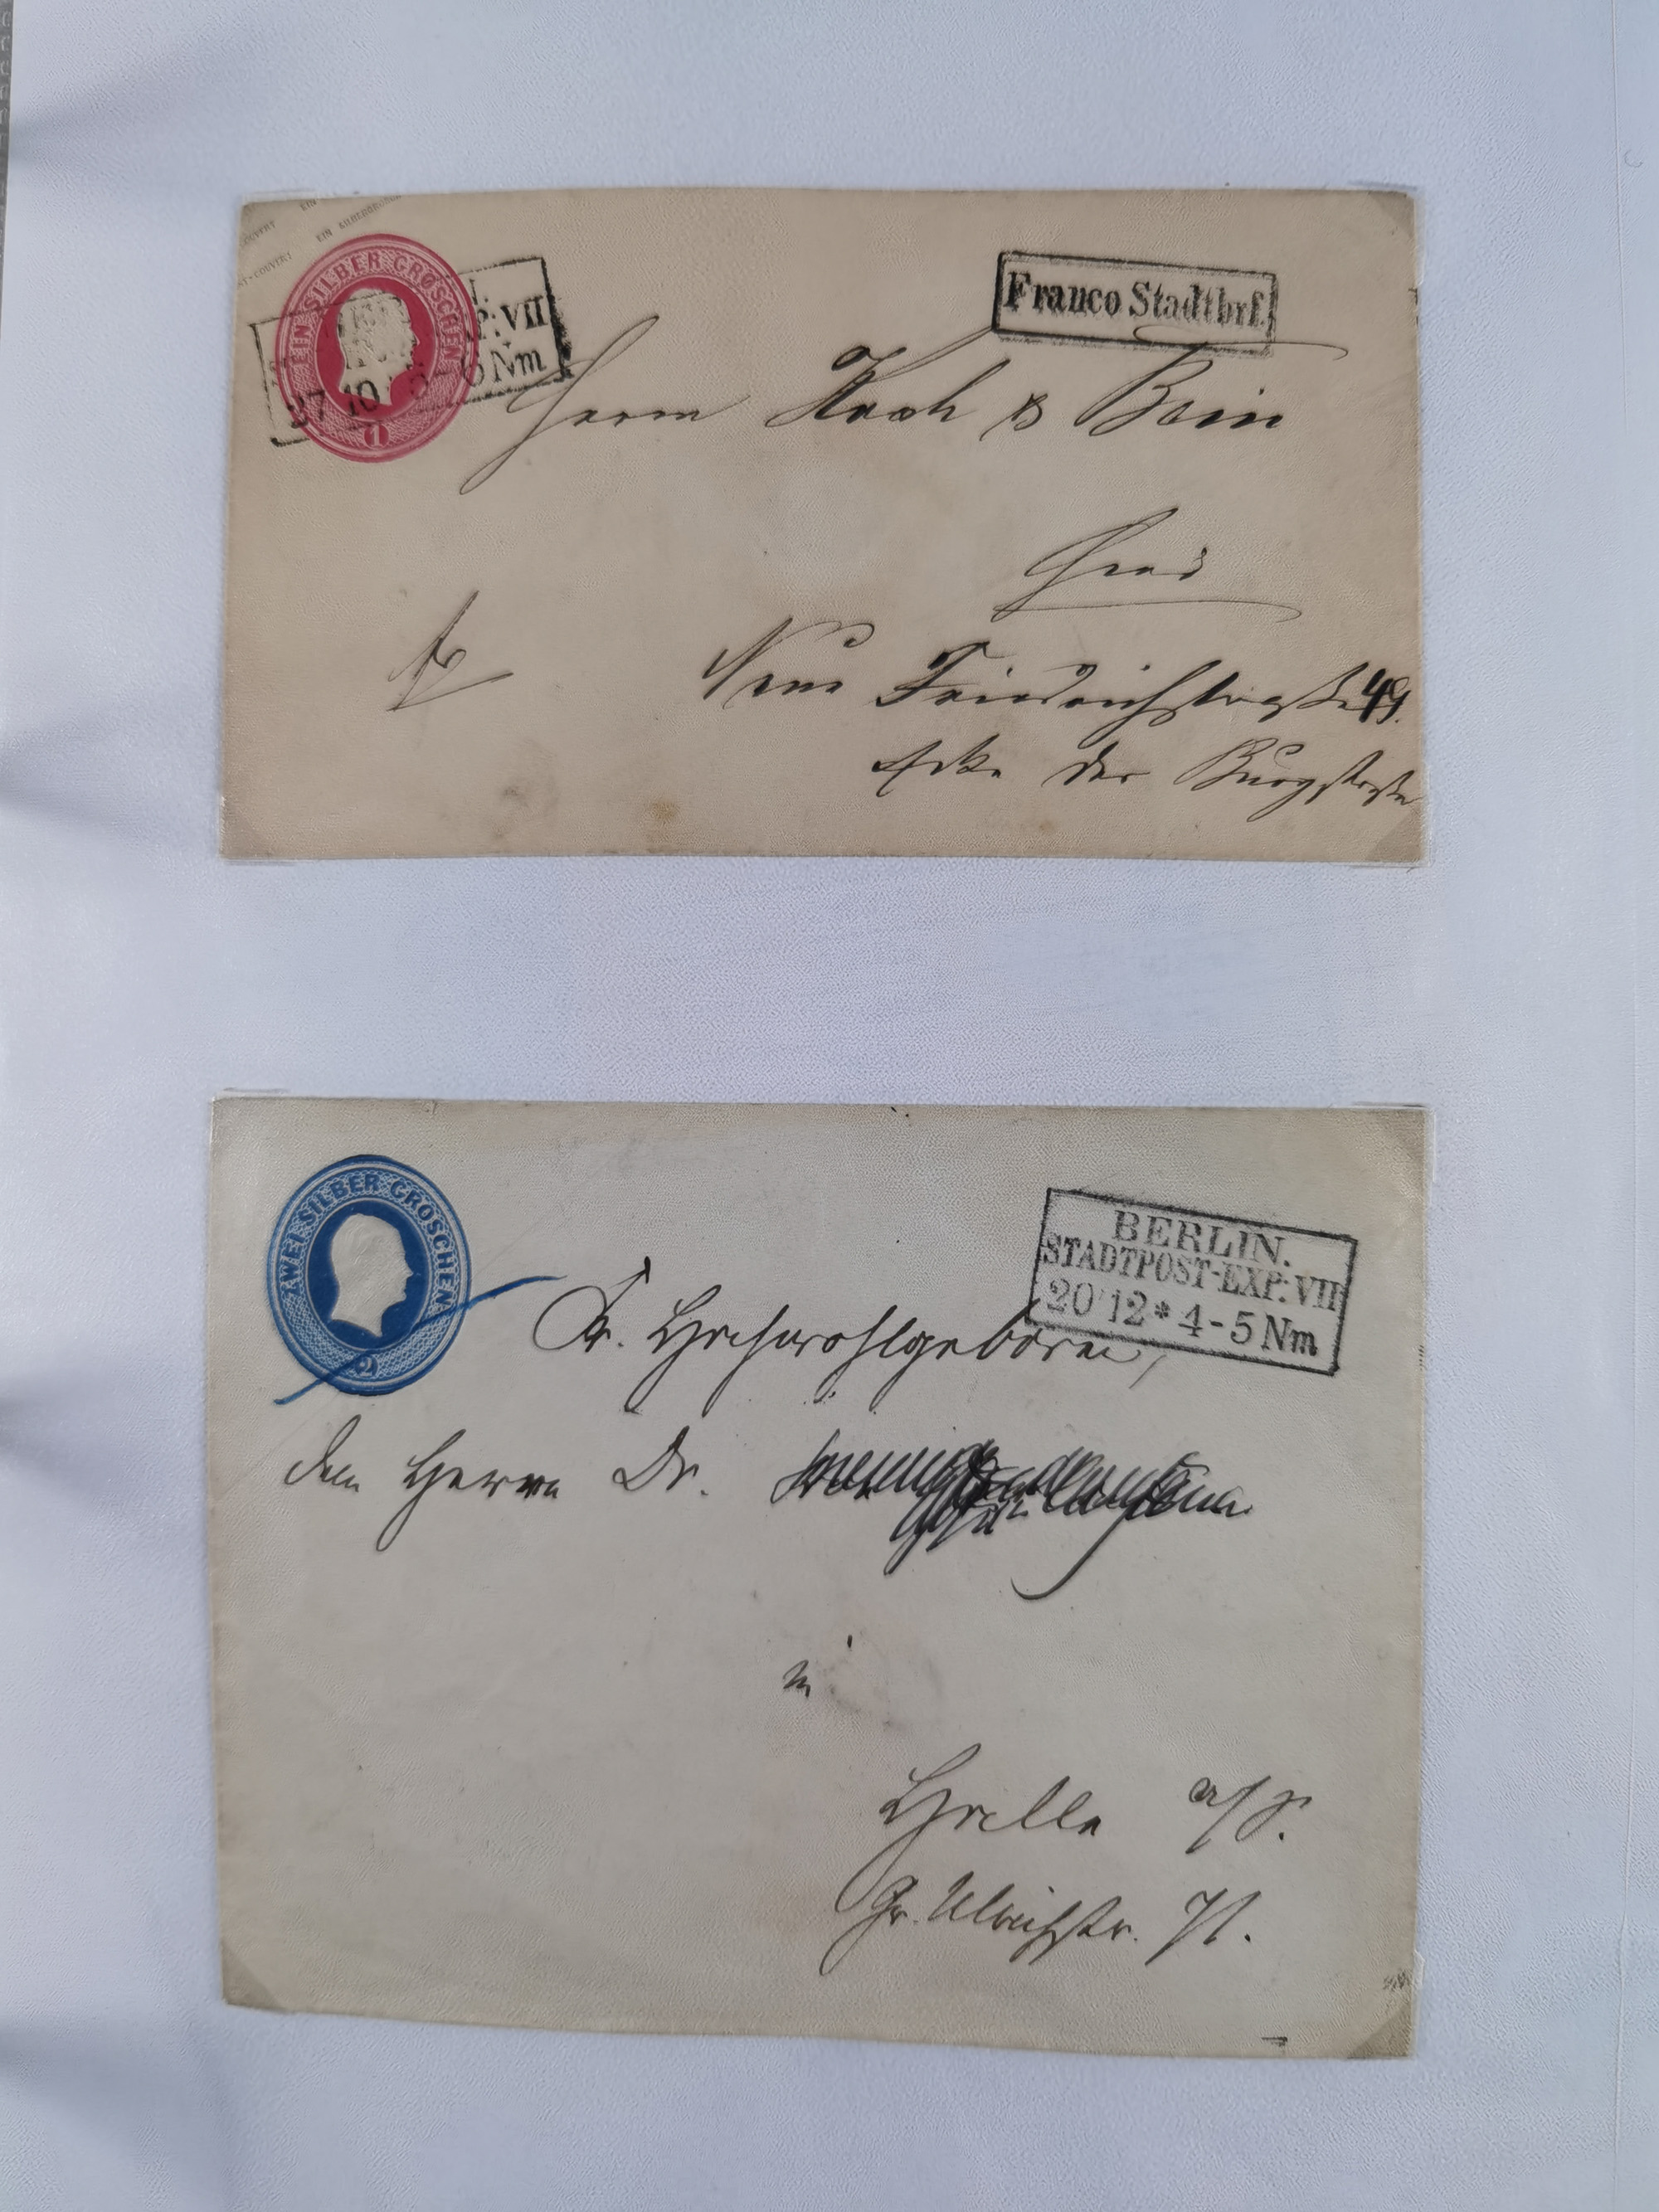 EIN SILBERGROSCHEN
EIN SILBER GROSCHEN
1
P:VII
27 10 5-6 Nm
Franco Stadtbrf.
Herrn Koch & Bein
hier
Neue Friedrichstraße 49.
Ecke der Burgstraße
ZWEI SILBER GROSCHEN
2
BERLIN.
STADTPOST-EXP: VII
20 12 * 4-5 Nm
Sr. Hochwohlgeboren,
dem Herrn Dr.
in
Halle a/S.
Gr. Ulrichstr.